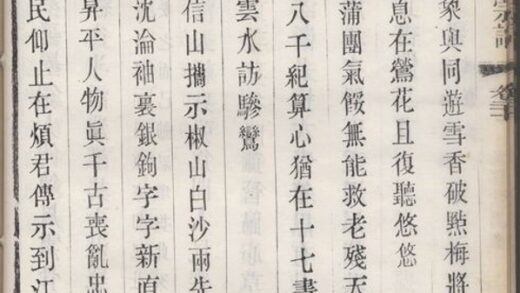 與同遊雪香破點梅將
息在鶯花且復聽悠悠
蒲團氣餒無能救老殘天
八千紀算心猶在十七
雲水訪驂鸞
信山攜示椒山白沙兩先
沈淪袖裏銀鉤字字新直
昇平人物眞千古喪亂忠
民仰止在煩君傳示到江